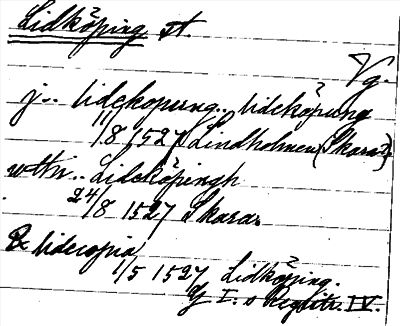 Lidköping st.
Vg.
j... lidekopung.. lideköpung
11/8 1527 Lindholmen (Skara?)
wthi.. Lideköpingh
24/8 1527 Skara
lidecopia
1/5 1527 Lidköping.
G I:s Registr. IV.